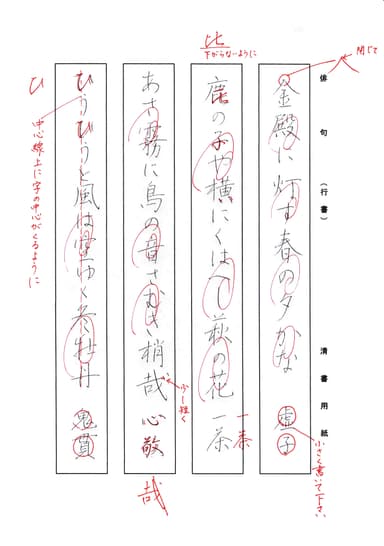 俳句(行書) 清書用紙
閉じて
人
金殿に灯す春の夕かな 虚子
小さく書いて下さい
比
下がらないように
鹿の子や横にくはへし萩の花 一茶
一茶
あさ霧に鳥の音さむき梢哉 心敬
少し短く
哉
びうびうと風は空ゆく冬牡丹 鬼貫
ひ
中心線上に字の中心がくるように